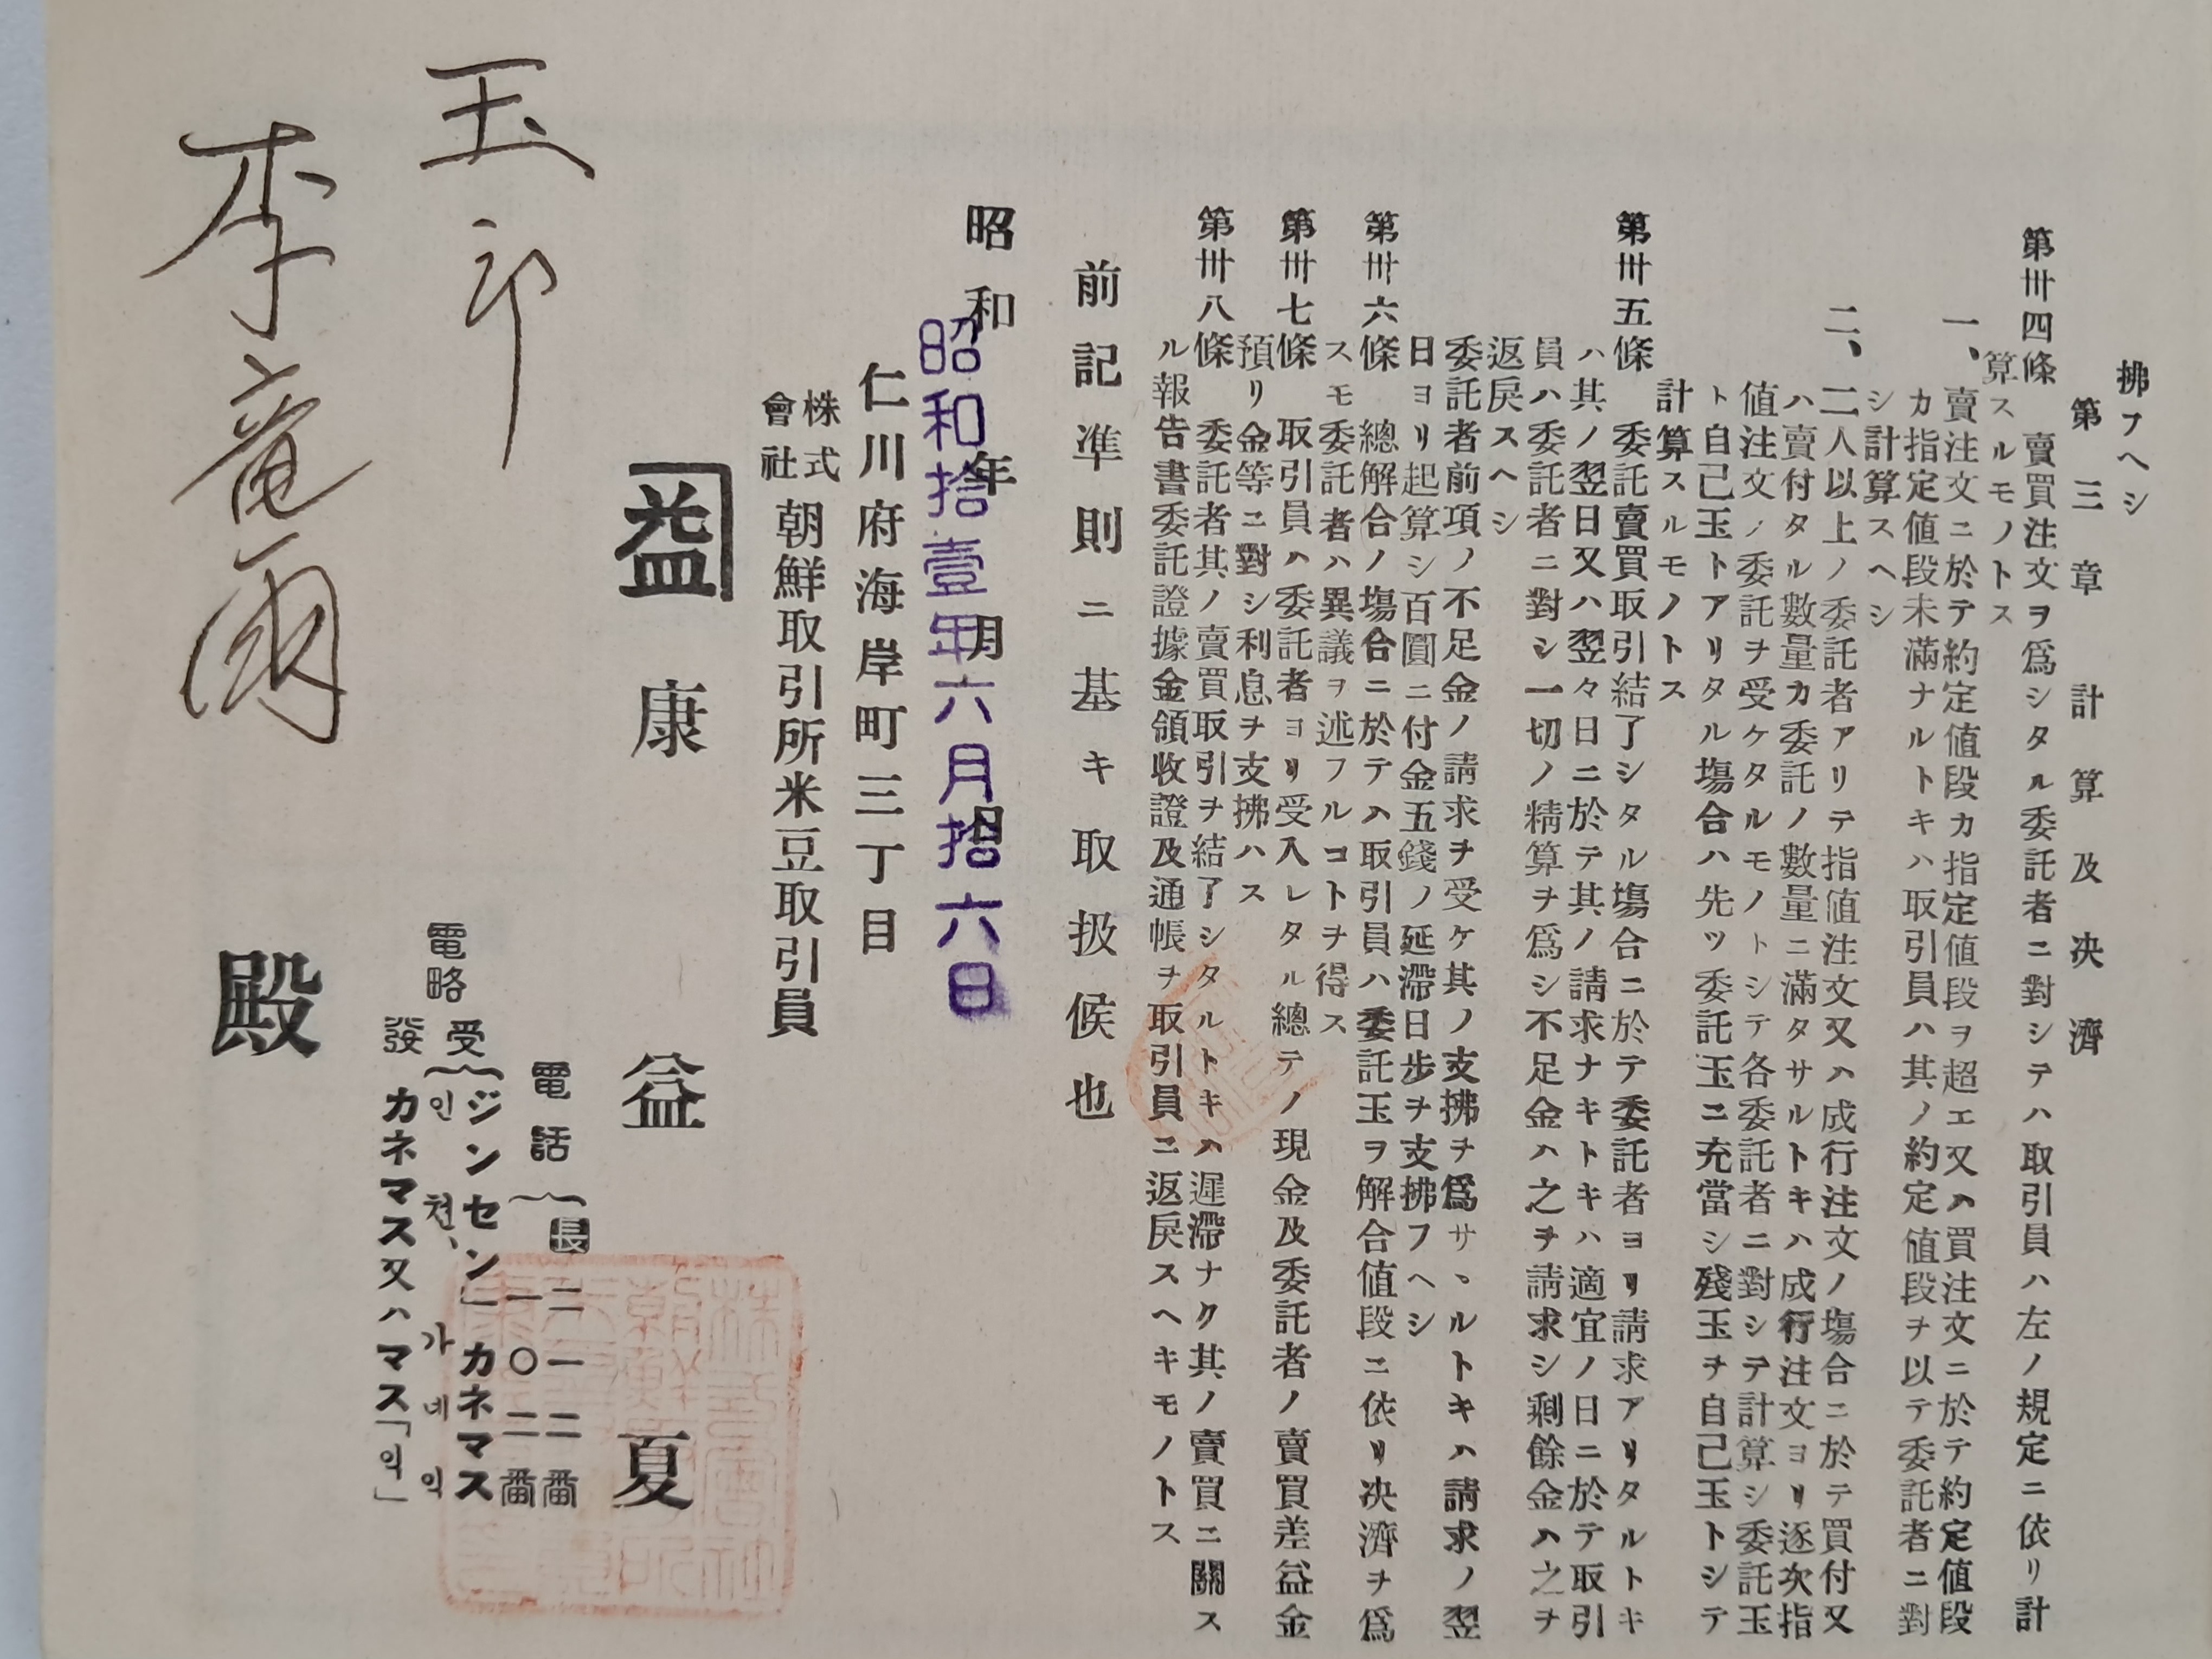 拂フヘシ
第三章 計算及決濟
第卅四條 賣買注文ヲ爲シタル委託者ニ對シテハ取引員ハ左ノ規定ニ依リ計
算スルモノトス
一、賣注文ニ於テ約定値段カ指定値段ヲ超エ又ハ買注文ニ於テ約定値段
カ指定値段未滿ナルトキハ取引員ハ其ノ約定値段ヲ以テ委託者ニ對
シ計算スヘシ
二、二人以上ノ委託者アリテ指値注文又ハ成行注文ノ塲合ニ於テ買付又
ハ賣付タル數量カ委託ノ數量ニ滿タサルトキハ成行注文ヨリ逐次指
値注文ノ委託ヲ受ケタルモノトシテ各委託者ニ對シテ計算シ委託玉
ト自己玉トアリタル塲合ハ先ツ委託玉ニ充當シ殘玉ヲ自己玉トシテ
計算スルモノトス
第卅五條 委託賣買取引結了シタル塲合ニ於テ委託者ヨリ請求アリタルトキ
ハ其ノ翌日又ハ翌々日ニ於テ其ノ請求ナキトキハ適宜ノ日ニ於テ取引
員ハ委託者ニ對シ一切ノ精算ヲ爲シ不足金ハ之ヲ請求シ剩餘金ハ之ヲ
返戻スヘシ
委託者前項ノ不足金ノ請求ヲ受ケ其ノ支拂ヲ爲サヽルトキハ請求ノ翌
日ヨリ起算シ百圓ニ付金五錢ノ延滯日步ヲ支拂フヘシ
第卅六條 總解合ノ塲合ニ於テハ取引員ハ委託玉ヲ解合値段ニ依リ决濟ヲ爲
スモ委託者ハ異議ヲ述フルコトヲ得ス
第卅七條 取引員ハ委託者ヨリ受入レタル總テノ現金及委託者ノ賣買差益金
預リ金等ニ對シ利息ヲ支拂ハス
第卅八條 委託者其ノ賣買取引ヲ結了シタルトキハ遲滯ナク其ノ賣買ニ關ス
ル報告書委託證據金領收證及通帳ヲ取引員ニ返戻スヘキモノトス
前記準則ニ基キ取扱候也
昭和 年 月 日
昭和拾壹年六月拾六日
仁川府海岸町三丁目
株式會社 朝鮮取引所米豆取引員
益 康益夏
電話 長二一一二番
一〇二番
電略 受 ジンセン」カネマス
인천、가네익
發 カネマス又ハマス「익」
玉
李
殿